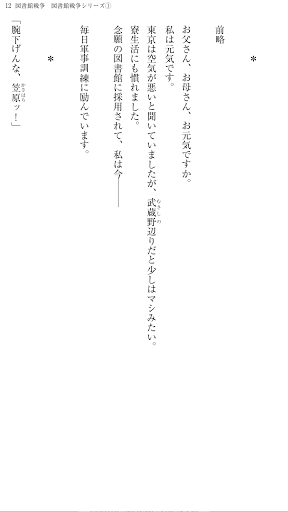 12 図書館戦争 図書館戦争シリーズ①
*
前略
お父さん、お母さん、お元気ですか。
私は元気です。
東京は空気が悪いと聞いていましたが、武蔵野辺りだと少しはマシみたい。
寮生活にも慣れました。
念願の図書館に採用されて、私は今――
毎日軍事訓練に励んでいます。
*
「腕下げんな、笠原ッ！」